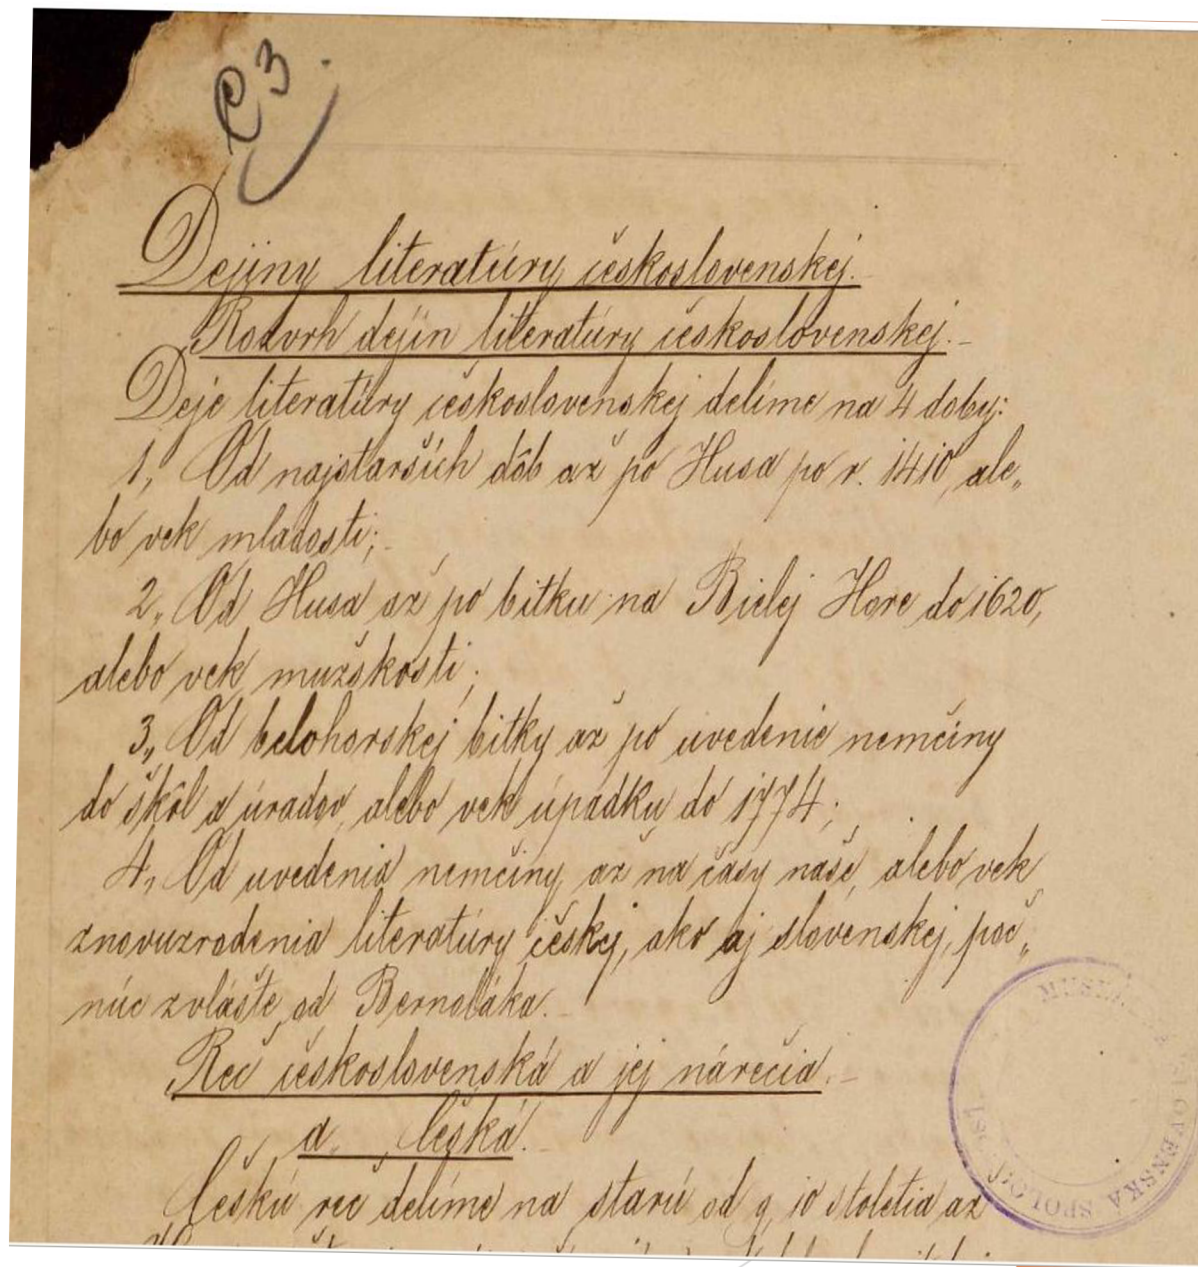 C3.
Dejiny literatúry československej.
Rozvrh dejín literatúry československej.-
Deje literatúry československej delíme na 4 doby:
1, Od najstarších dôb až po Husa po r. 1410, ale„
bo vek mladosti;-
2, Od Husa až po bitku na Bielej Hore do 1620,
alebo vek mužskosti;
3, Od belohorskej bitky až po uvedenie nemčiny
do škôl a úradov, alebo vek úpadku do 1774;
4, Od uvedenia nemčiny až na časy naše, alebo vek
znovuzrodenia literatúry českej, ako aj slovenskej, poč„
núc zvlášte od Bernoláka.-
Reč československá a jej nárečia.-
a, Česká.-
Českú reč delíme na starú od 9, 10 stoletia až
SLOVENSKÁ SPOLOČ